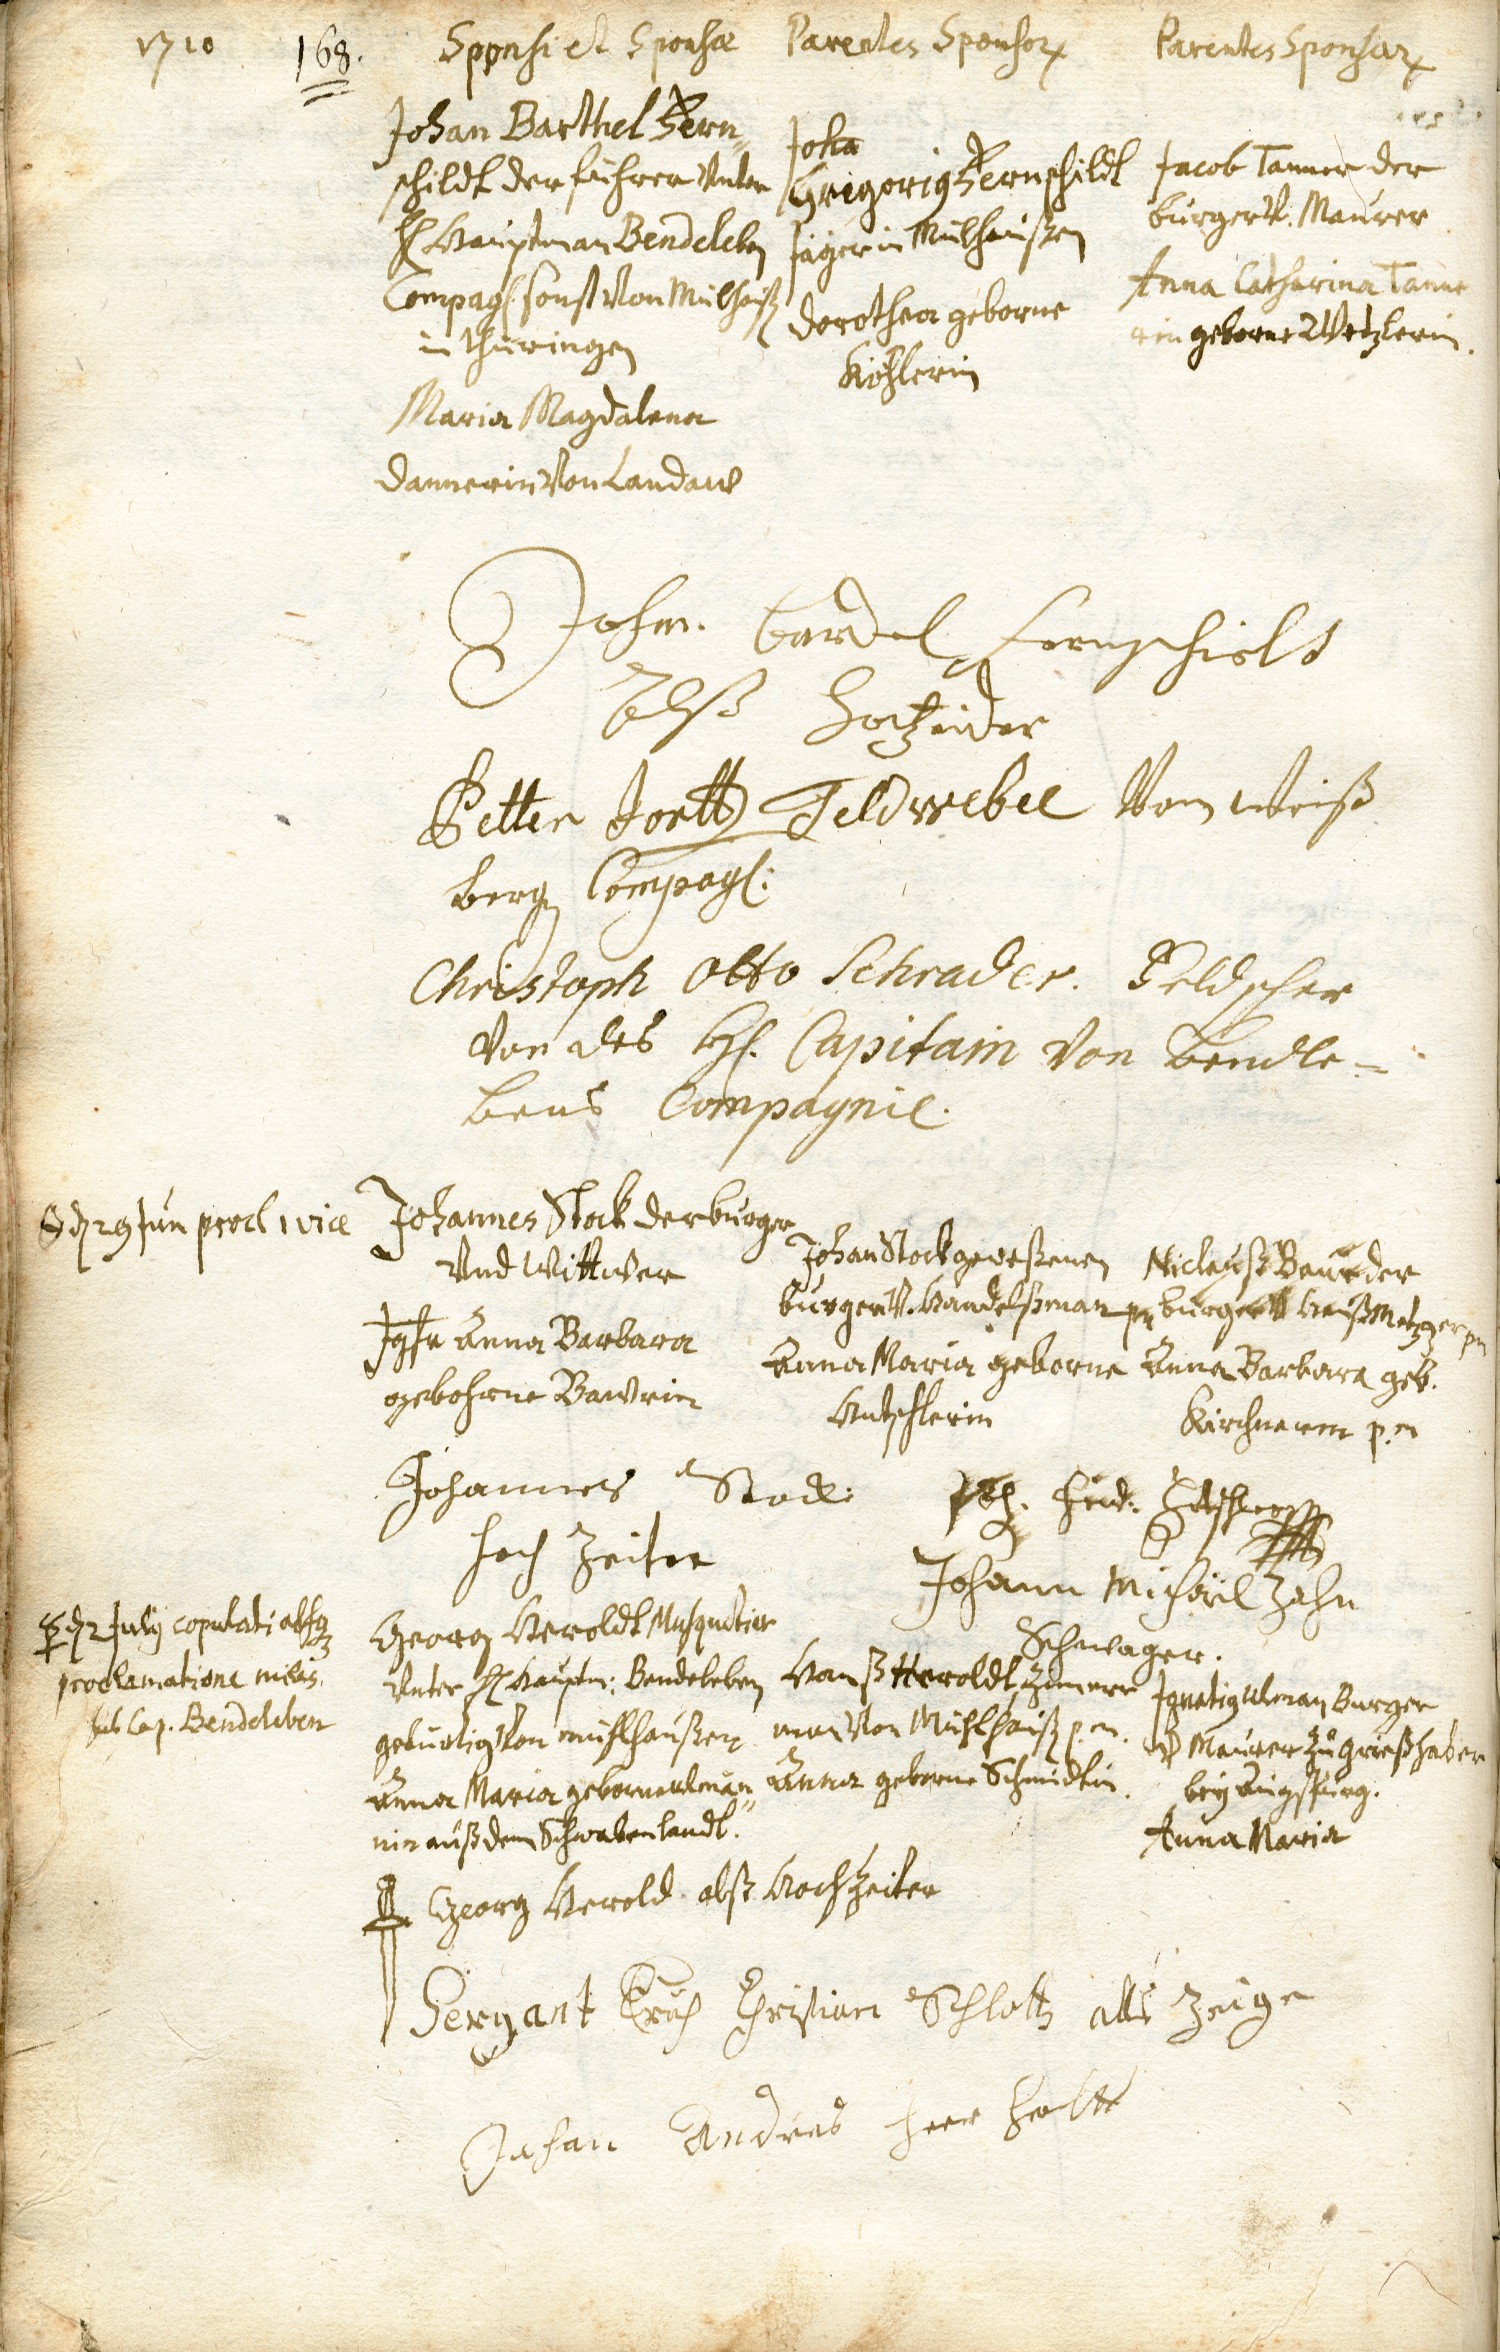 1710
168.
Sponsi et Sponsæ
Parentes Sponsor
Parentes Sponsar
Johan Barthel Fern=
schildt der führer Unter
H Hauptman Bendeleben
Compag. sonst von Mülhauß
in thüringen
Maria Magdalena
Dannerin von Landaw
Joha
Gregorig Fernschildt
Jäger in Mülhaußen
Dorothea geborne
Köhlerin
Jacob Tanner der
burger V. Maurer
Anna Catharina Tanne
rin geborne Wetzlerin.
Johan. bardel fernschielt
alß hochzeider
Petter Jortt Feldwebel Vom weiß
bergn Compagl:
Christoph Otto Schrader. Feldscher
von des H. Capitain von Bendle=
bens Compagnie.
d 29 Jun procl 1 vice
Johannes Stock der burger
Und Wittwer
Jgfr Anna Barbara
gebohrne Bawrin
Johan Stock geweßenen
burger V. Handelßman pm
Anna Maria geborne
Nicolauß Baur der
burger V Haußmetzger pm
Anna Barbara geb.
Kirchnerin p.m
Johannes Stock
hoch Zeiter
Johann Michäel Zahn
Schwager.
d 2 July copulati absq
proclamatione milis.
sub Cap. Bendeleben
Georg Heroldt Musquetier
Unter H Hauptm: Bendeleben
gebürtig von mühlhaußen
Anna Maria geborne Ulman=
nin auß dem Schwabenlandt.
Hanß Heroldt Zimmer
man von Mühlhauß p.m.
Anna geborne Schmidtin.
Ignatig Ulman Burger
V Maurer zu Grießhaber
bey Augspurg.
Anna Maria
Georg Herold alß Hochzeiter
Sergant Christian Schlott alls Zeige
Johan Andreas